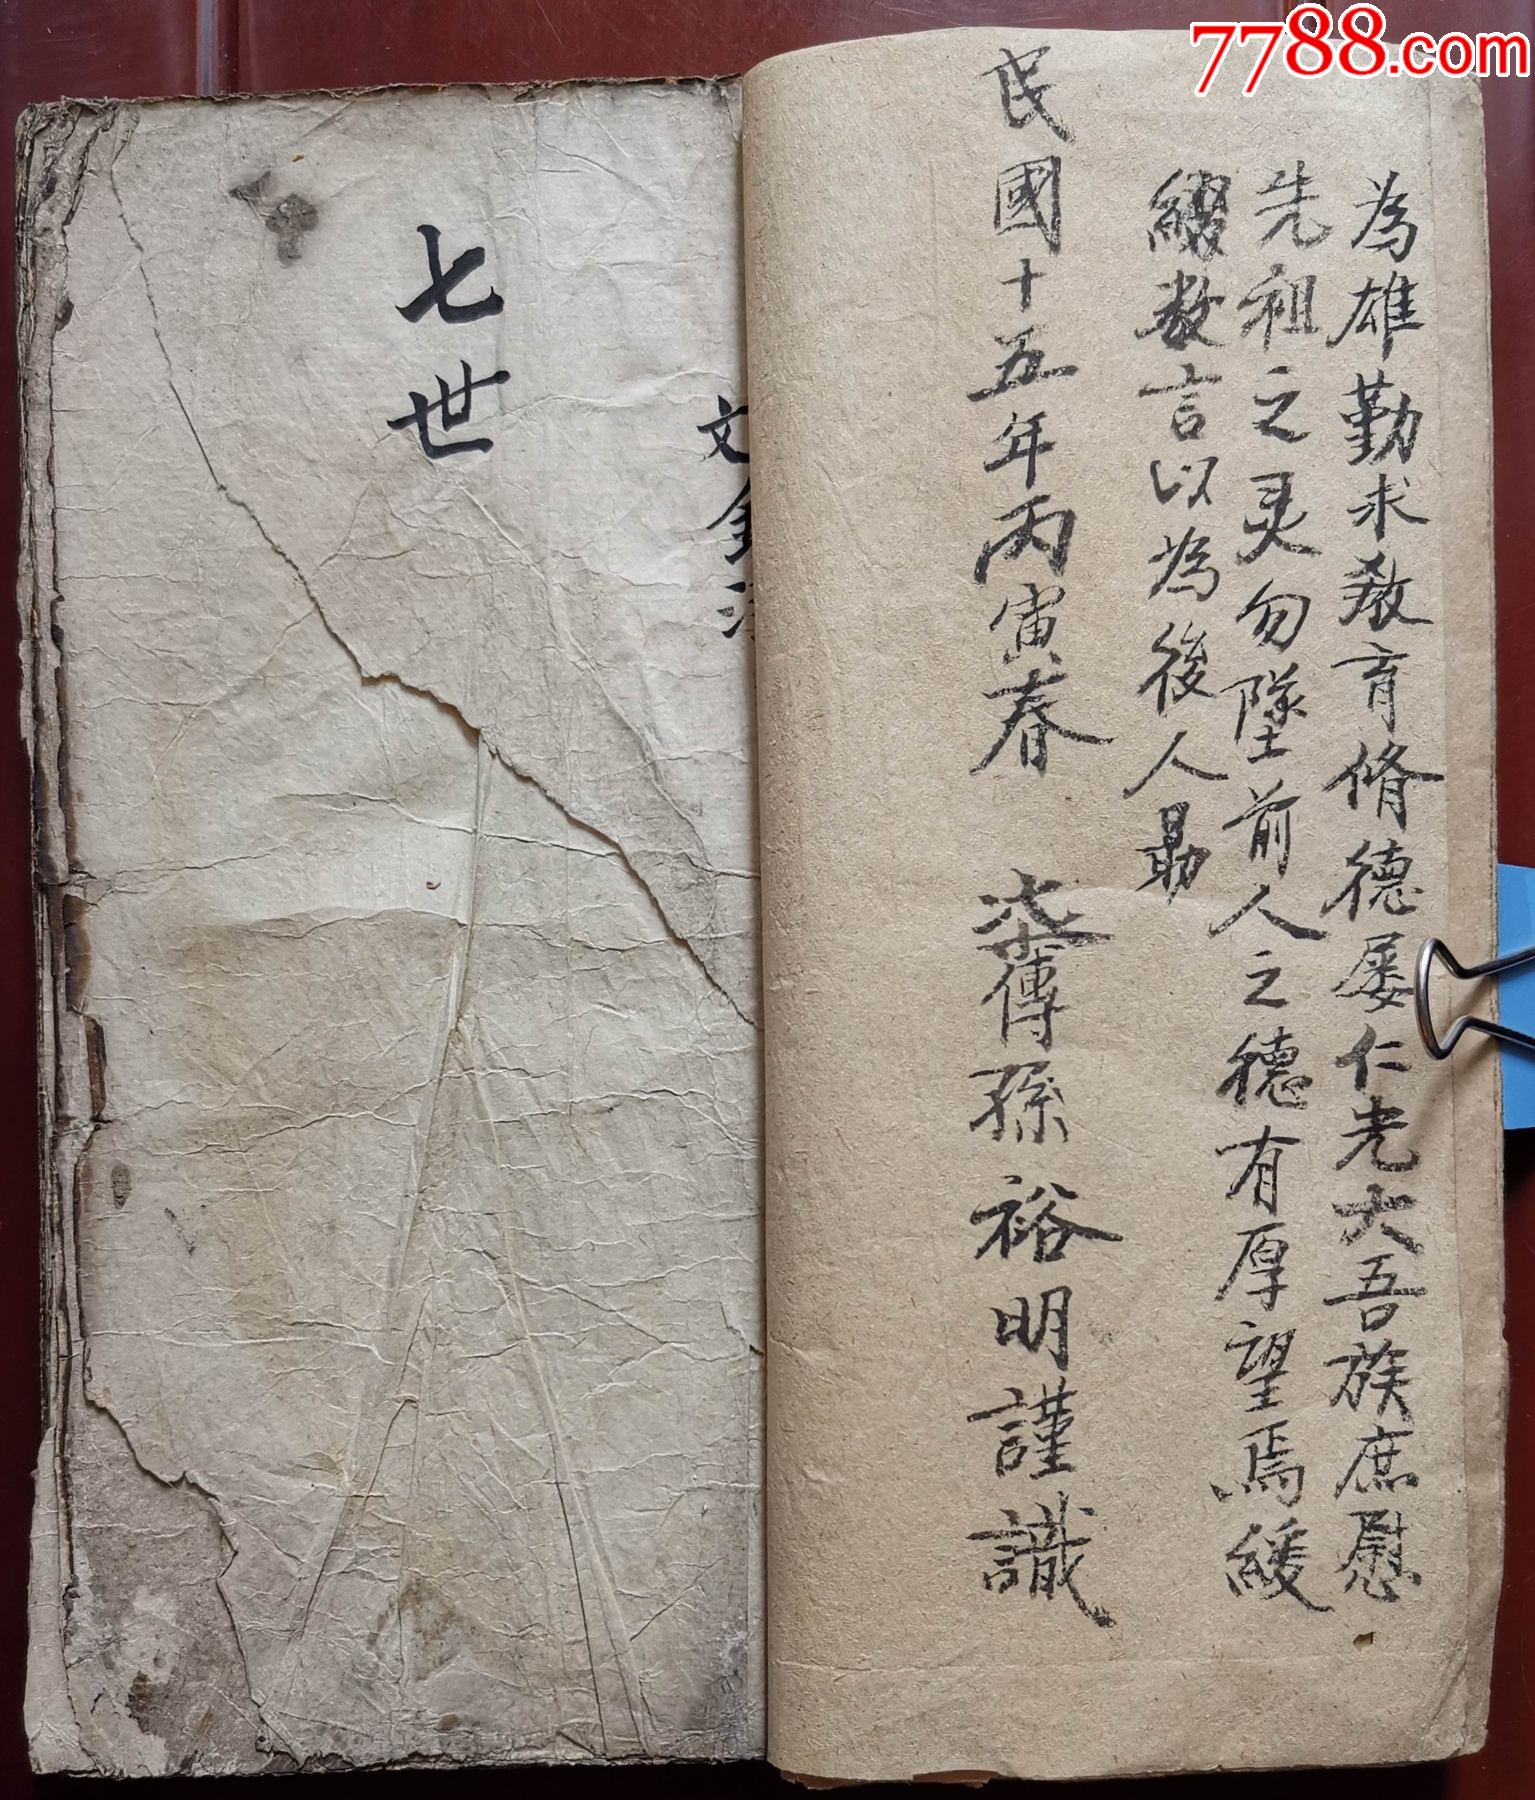 7788.com
為雄勤求教育脩德屡仁光大吾族庶慰
先祖之灵勿墜前人之德有厚望焉緩
綴数言以為後人勗
民國十五年丙寅春 柒傳孫裕明謹識
文
七世